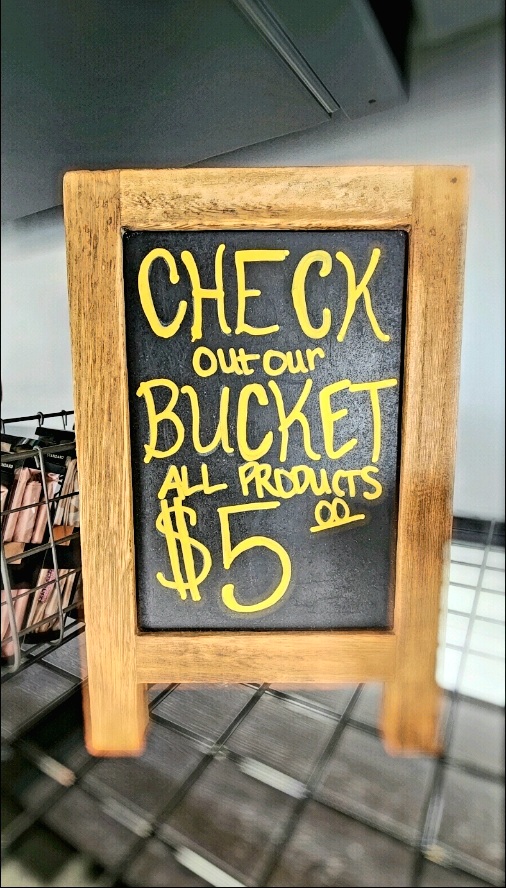 CHECK
out our
BUCKET
ALL PRODUCTS
$5 00